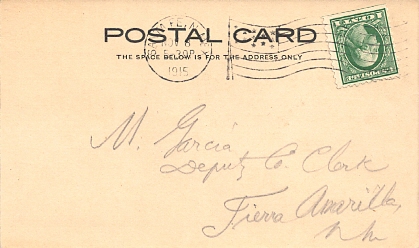 POSTAL CARD
THE SPACE BELOW IS FOR THE ADDRESS ONLY
NOV 6
5-30P
1915
M. Garcia
Deputy Co. Clerk
Tierra Amarilla,
N.M.